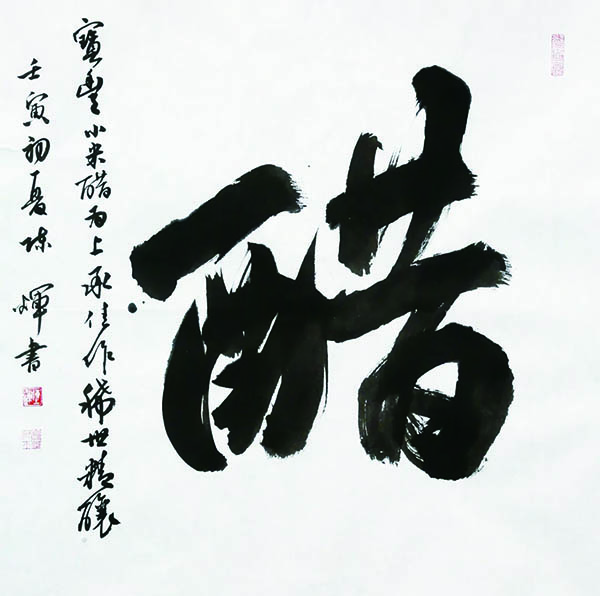 醋
寶豐小米醋為上承佳作稀世精釀
壬寅初夏陳輝書